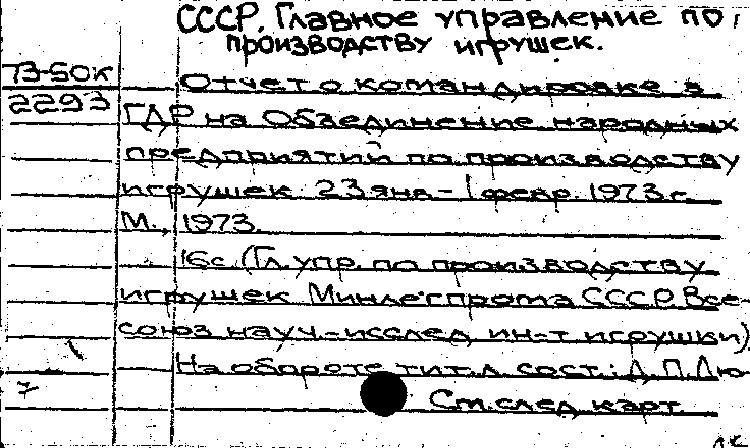 СССР. Главное управление по
производству игрушек.
73-50к
2293
Отчет о командировке в
ГДР на Объединение народных
предприятий по производству
игрушек. 23 янв.- 1 февр. 1973 г.
М., 1973.
16с. (Гл. упр. по производству
игрушек Минлегпрома СССР. Все-
союз. науч.-исслед. ин-т игрушки)
На обороте тит. л. сост.: Д.П. Лю-
7
См. след. карт.